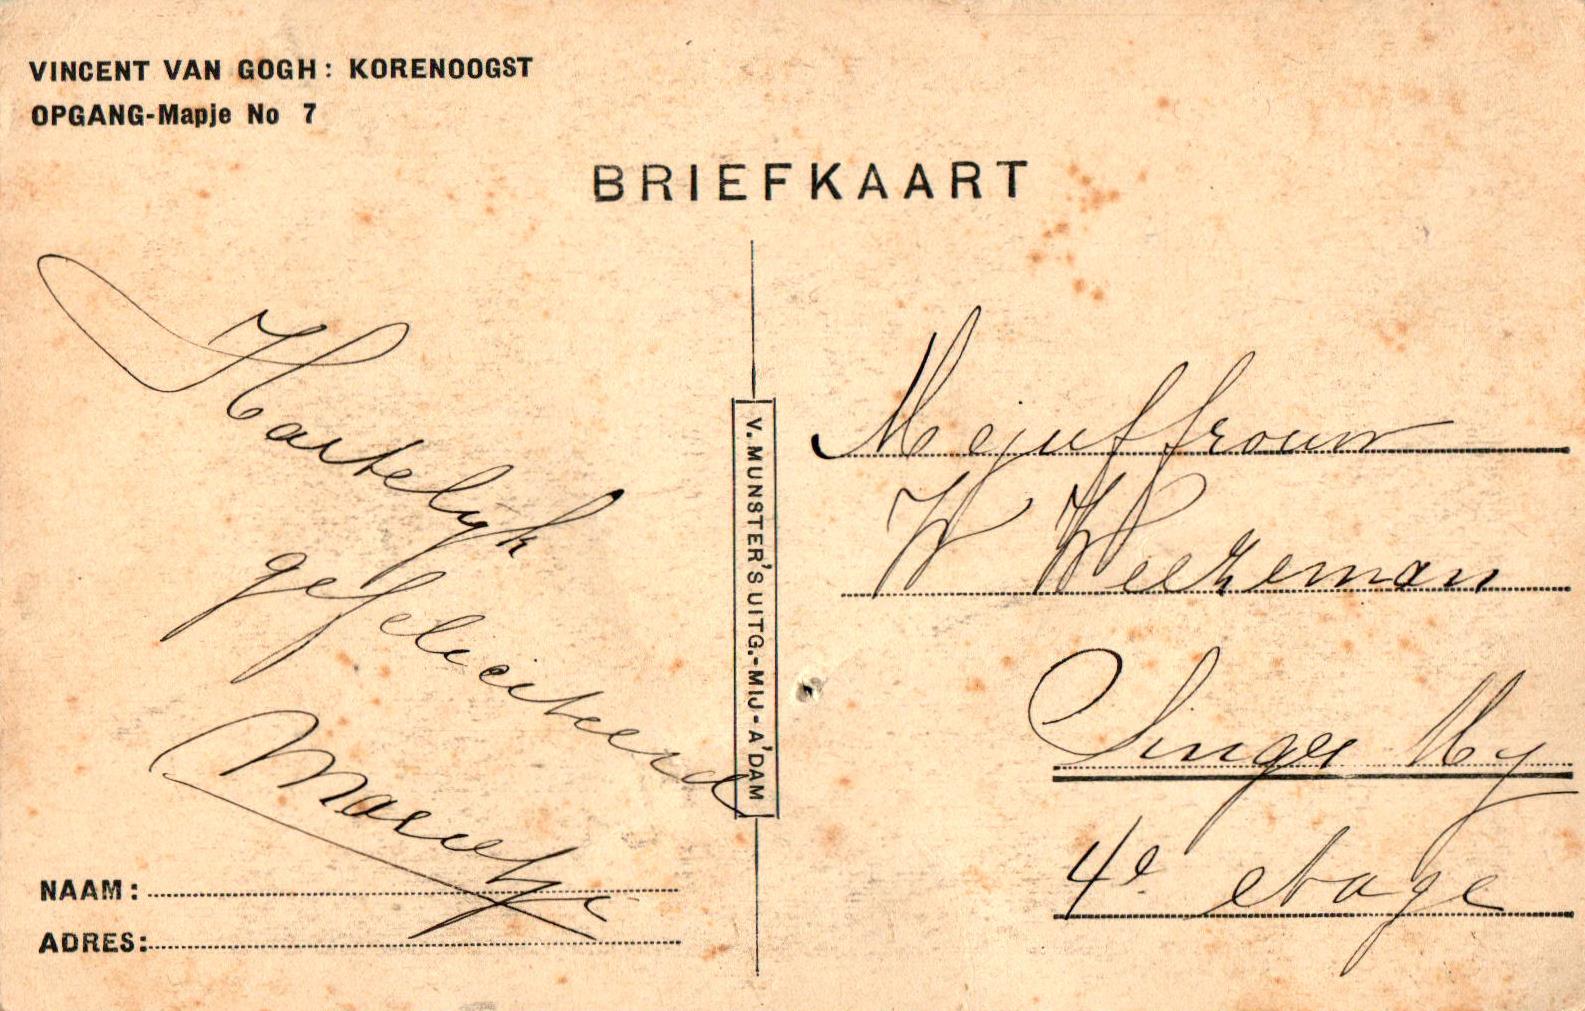 VINCENT VAN GOGH: KORENOOGST
OPGANG-Mapje No 7
BRIEFKAART
Hartelyk
gefeliciteerd
Marcelje
V. MUNSTER'S UITG.-MIJ-A'DAM
NAAM:
ADRES:
Mejuffrouw
W Weekeman
Singer My
4e etage